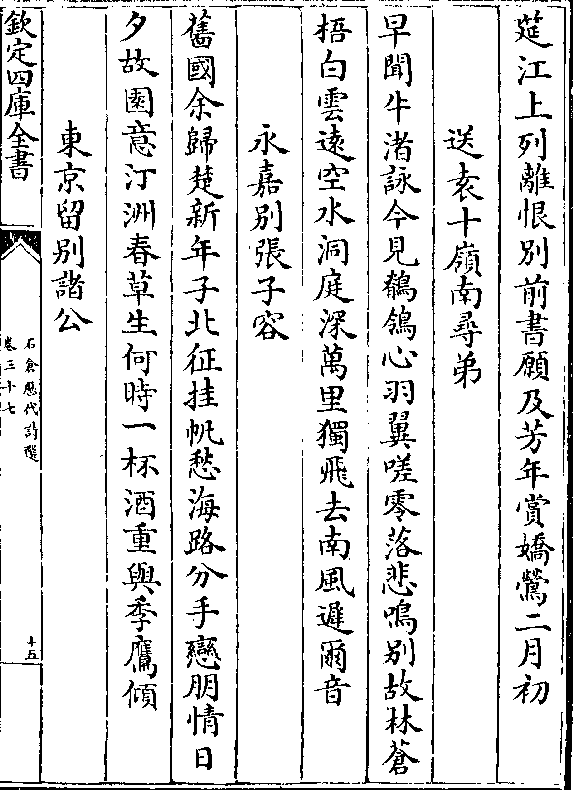 筵江上列離恨別前書願及芳年賞嬌鶯二月初
送袁十嶺南尋弟
早聞牛渚詠今見鶺鴒心羽翼嗟零落悲鳴別故林蒼
梧白雲遠空水洞庭深萬里獨飛去南風遲爾音
永嘉別張子容
舊國余歸楚新年子北征挂帆愁海路分手戀朋情日
夕故園意汀洲春草生何時一杯酒重與季鷹傾
東京留別諸公
欽定四庫全書
石倉歷代詩選
卷三十七
十五